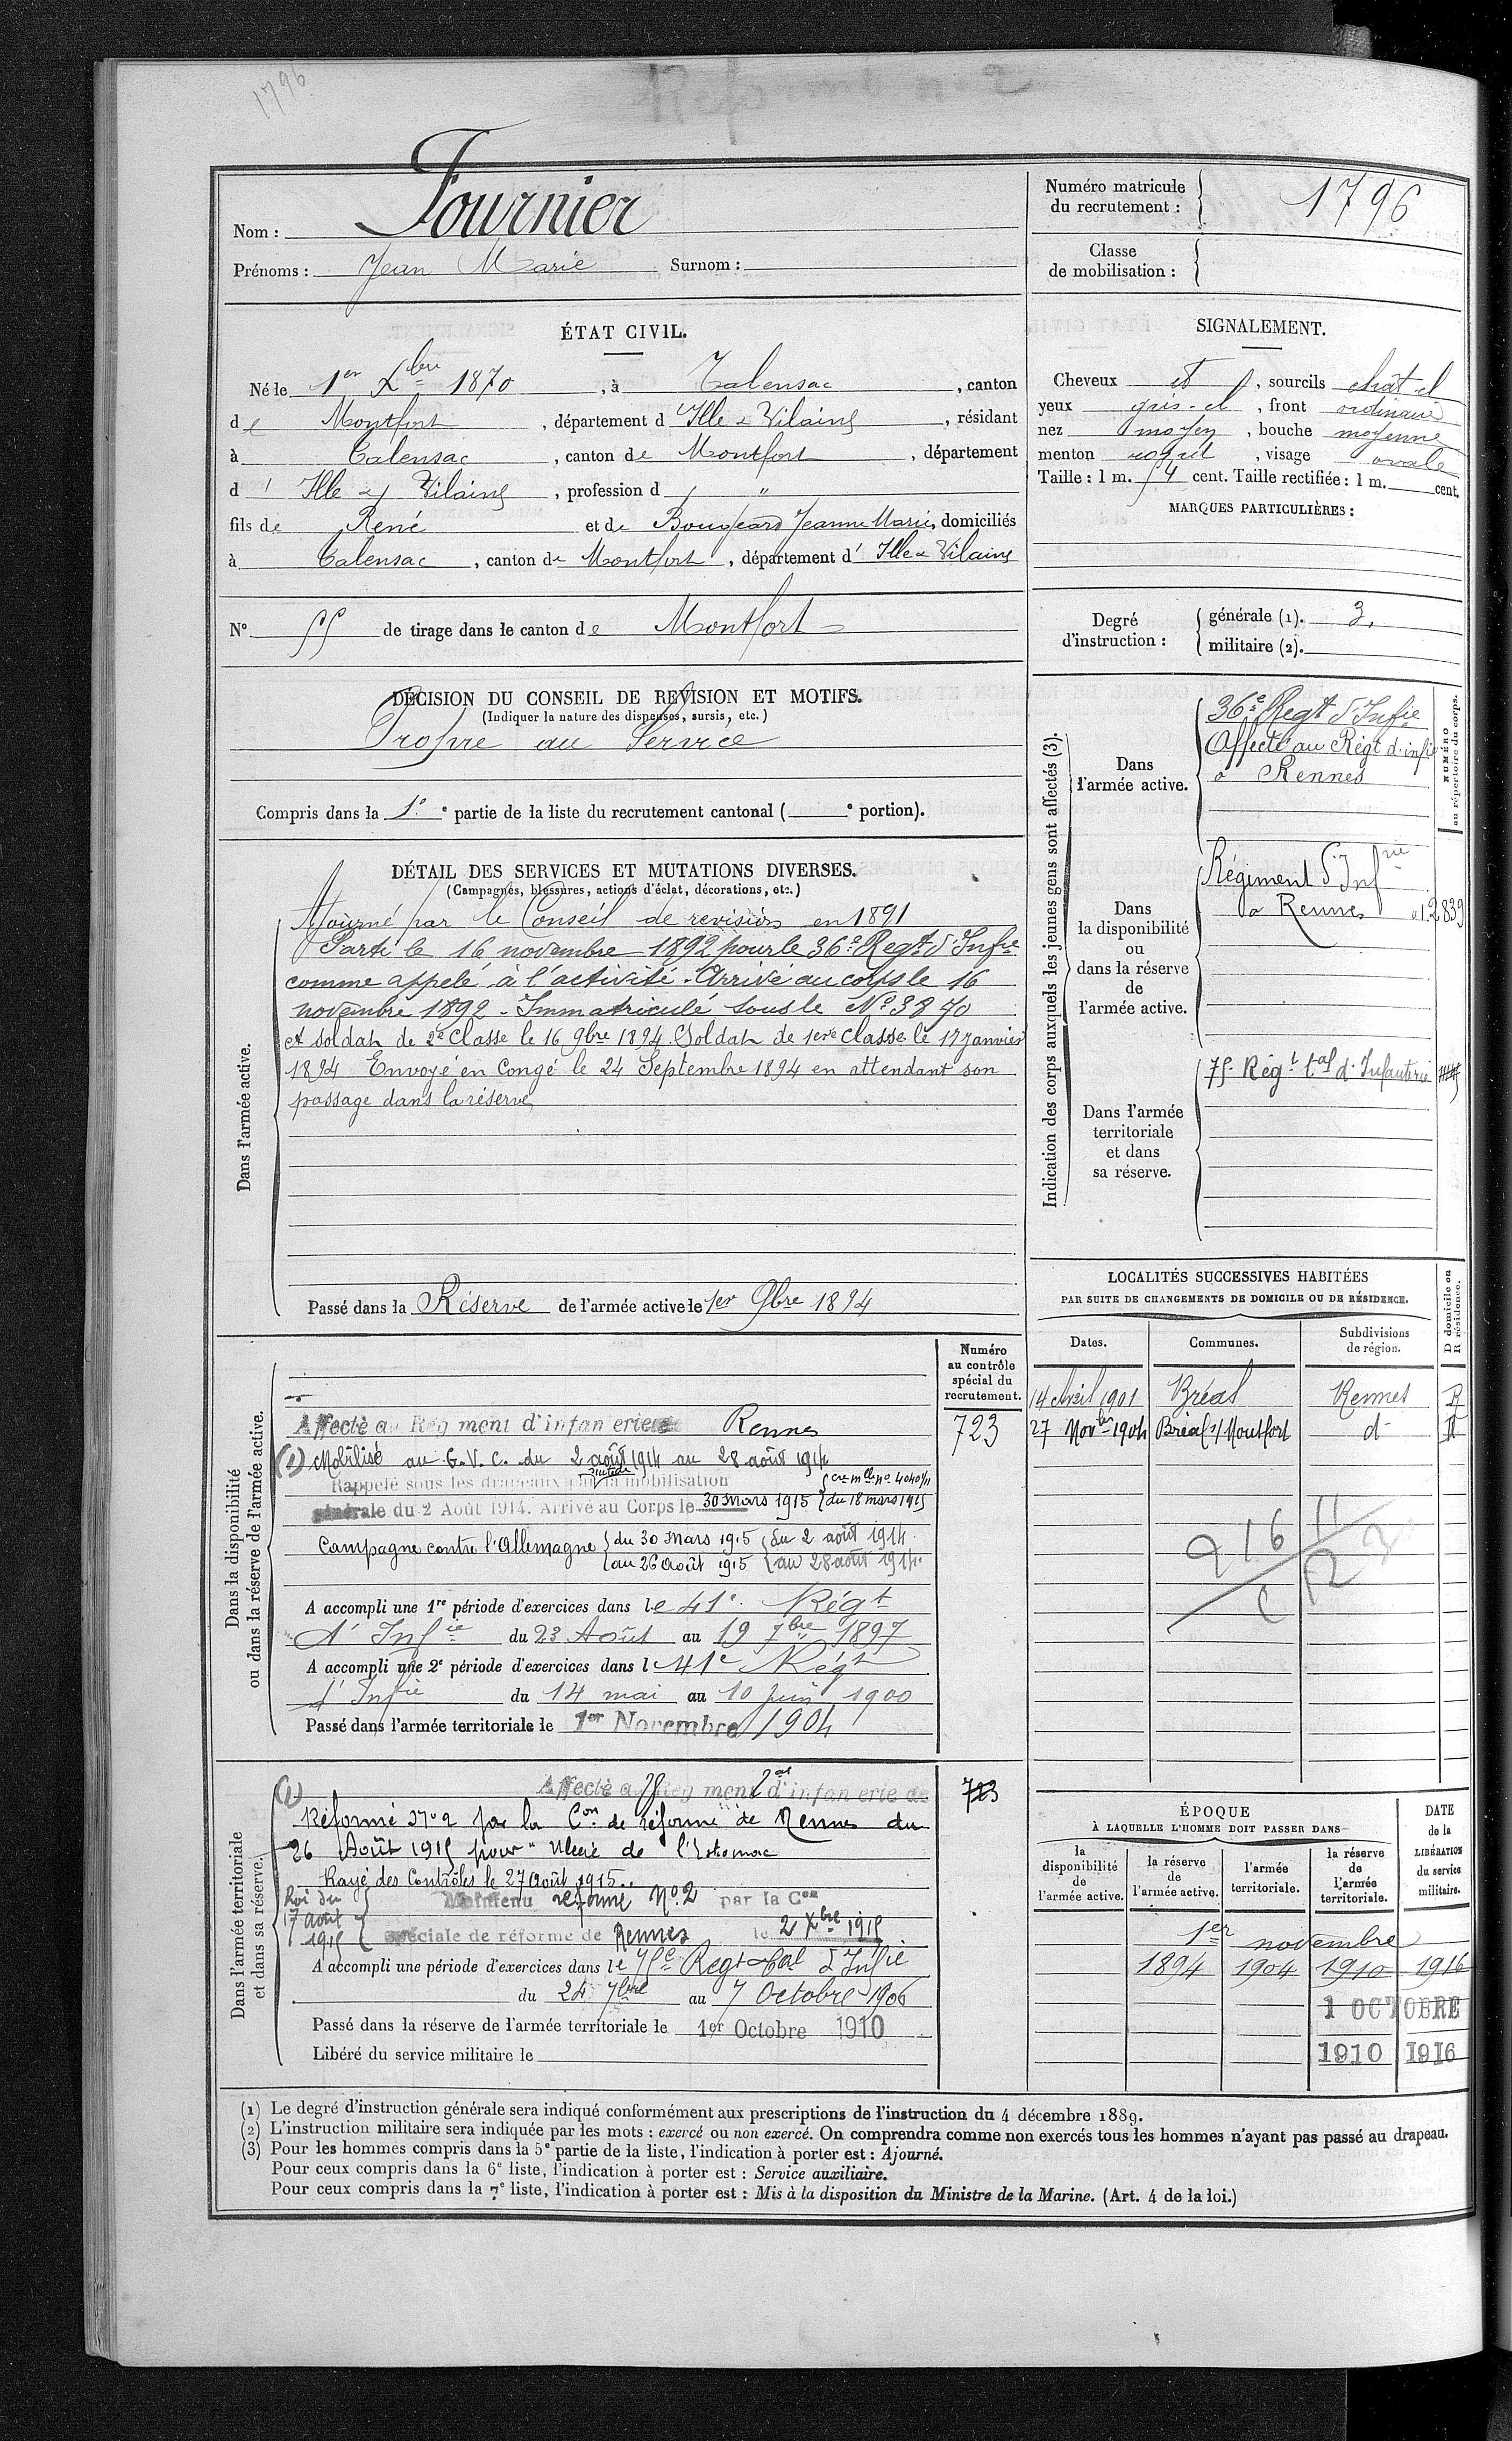 1796
Réformé n° 2
Nom : Fournier
Prénoms : Jean Marie Surnom :
Numéro matricule
du recrutement : 1796
Classe
de mobilisation :
ÉTAT CIVIL.
Né le 1er Xbre 1870, à Talensac, canton
de Montfort, département d'Ille & Vilaine, résidant
à Talensac, canton de Montfort, département
d' Ille & Vilaine, profession d "
fils de René et de Bougeard Jeanne Marie, domiciliés
à Talensac, canton de Montfort, département d' Ille & Vilaine
N° 55 de tirage dans le canton de Montfort
SIGNALEMENT.
Cheveux et, sourcils chât cl
yeux gris-cl, front ordinaire
nez moyen, bouche moyenne
menton, visage ovale
Taille : 1 m. 54 cent. Taille rectifiée : 1 m. cent.
MARQUES PARTICULIÈRES :
Degré
d'instruction :
générale (1). 3.
militaire (2).
DÉCISION DU CONSEIL DE REVISION ET MOTIFS.
(Indiquer la nature des dispenses, sursis, etc.)
Propre au Service
Compris dans la 1e e partie de la liste du recrutement cantonal ( e portion).
DÉTAIL DES SERVICES ET MUTATIONS DIVERSES.
(Campagnes, blessures, actions d'éclat, décorations, etc.)
Dans l'armée active.
Ajourné par le Conseil de revision en 1891
Parti le 16 novembre 1892 pour le 36e Regt d'Infie
comme appelé à l'activité. Arrivé au corps le 16
novembre 1892. Immatriculé sous le N° 3870
et soldat de 2e Classe le 16 9bre 1894. Soldat de 1ere Classe le 17 janvier
1894 Envoyé en Congé le 24 Septembre 1894 en attendant son
passage dans la réserve
Passé dans la Réserve de l'armée active le 1er 9bre 1894
Indication des corps auxquels les jeunes gens sont affectés (3).
NUMÉRO
au répertoire du corps.
Dans
l'armée active.
36e Regt d'Infie
Affecté au Régt d'infie
à Rennes
Dans
la disponibilité
ou
dans la réserve
de
l'armée active.
Régiment d'Infrie
à Rennes 2839
Dans l'armée
territoriale
et dans
sa réserve.
75e Régt tal d'Infanterie
LOCALITÉS SUCCESSIVES HABITÉES
PAR SUITE DE CHANGEMENTS DE DOMICILE OU DE RÉSIDENCE.
Dates. Communes. Subdivisions
de région.
D domicile ou
R résidence.
14 Avril 1901 Bréal Rennes R
27 Novbre 1904 Bréal s/ Montfort d° R
216
Dans la disponibilité
ou dans la réserve de l'armée active.
Numéro
au contrôle
spécial du
recrutement.
723
Affecté au Régiment d'infanterie de Rennes
(1) Mobilisé au G.V.C. du 2 août 1914 au 28 août 1914
Rappelé sous les drapeaux la mobilisation
cre mlle n° 4040 1/11
générale du 2 Août 1914. Arrivé au Corps le 30 Mars 1915 (du 18 mars 1915
Campagne contre l'Allemagne du 30 Mars 1915 du 2 août 1914
au 26 Août 1915 au 28 août 1914
A accompli une 1re période d'exercices dans le 41e Régt
d'Infie du 23 Août au 19 7bre 1897
A accompli une 2e période d'exercices dans le 41e Régt
d'Infie du 14 mai au 10 juin 1900
Passé dans l'armée territoriale le 1er Novembre 1904
Dans l'armée territoriale
et dans sa réserve.
723
Affecté au 75 Régiment tal d'infanterie de
(1)
Réformé N° 2 par la Con de réforme de Rennes du
26 Août 1915 pour "Ulcère de l'Estomac
Rayé des Contrôles le 27 Août 1915.
Loi du
17 août
1915
Maintenu réformé N° 2 par la Con
spéciale de réforme de Rennes le 2 Xbre 1915
A accompli une période d'exercices dans le 75e Regt tal d'Infie
du 24 7bre au 7 Octobre 1906
Passé dans la réserve de l'armée territoriale le 1er Octobre 1910
Libéré du service militaire le
ÉPOQUE
À LAQUELLE L'HOMME DOIT PASSER DANS
DATE
de la
LIBÉRATION
du service
militaire.
la
disponibilité
de
l'armée active.
la réserve
de
l'armée active.
l'armée
territoriale.
la réserve
de
l'armée
territoriale.
1er novembre
1894 1904 1910 1916
1 OCTOBRE
1910 1916
(1) Le degré d'instruction générale sera indiqué conformément aux prescriptions de l'instruction du 4 décembre 1889.
(2) L'instruction militaire sera indiquée par les mots : exercé ou non exercé. On comprendra comme non exercés tous les hommes n'ayant pas passé au drapeau.
(3) Pour les hommes compris dans la 5e partie de la liste, l'indication à porter est : Ajourné.
Pour ceux compris dans la 6e liste, l'indication à porter est : Service auxiliaire.
Pour ceux compris dans la 7e liste, l'indication à porter est : Mis à la disposition du Ministre de la Marine. (Art. 4 de la loi.)